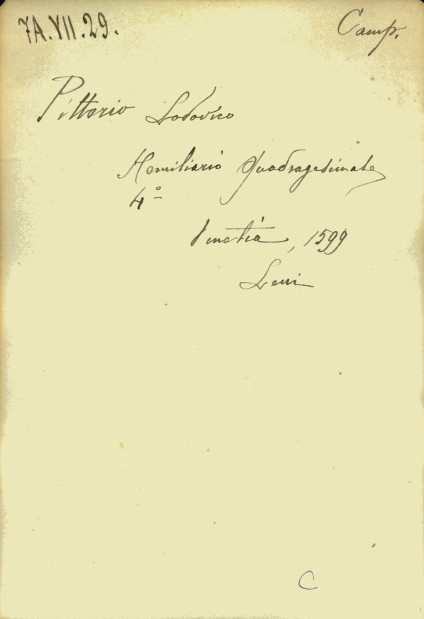 7A.VII.29.
Camp.
Pittorio Lodovico
Homiliario Quadragesimale
4º
Venetia, 1599
C